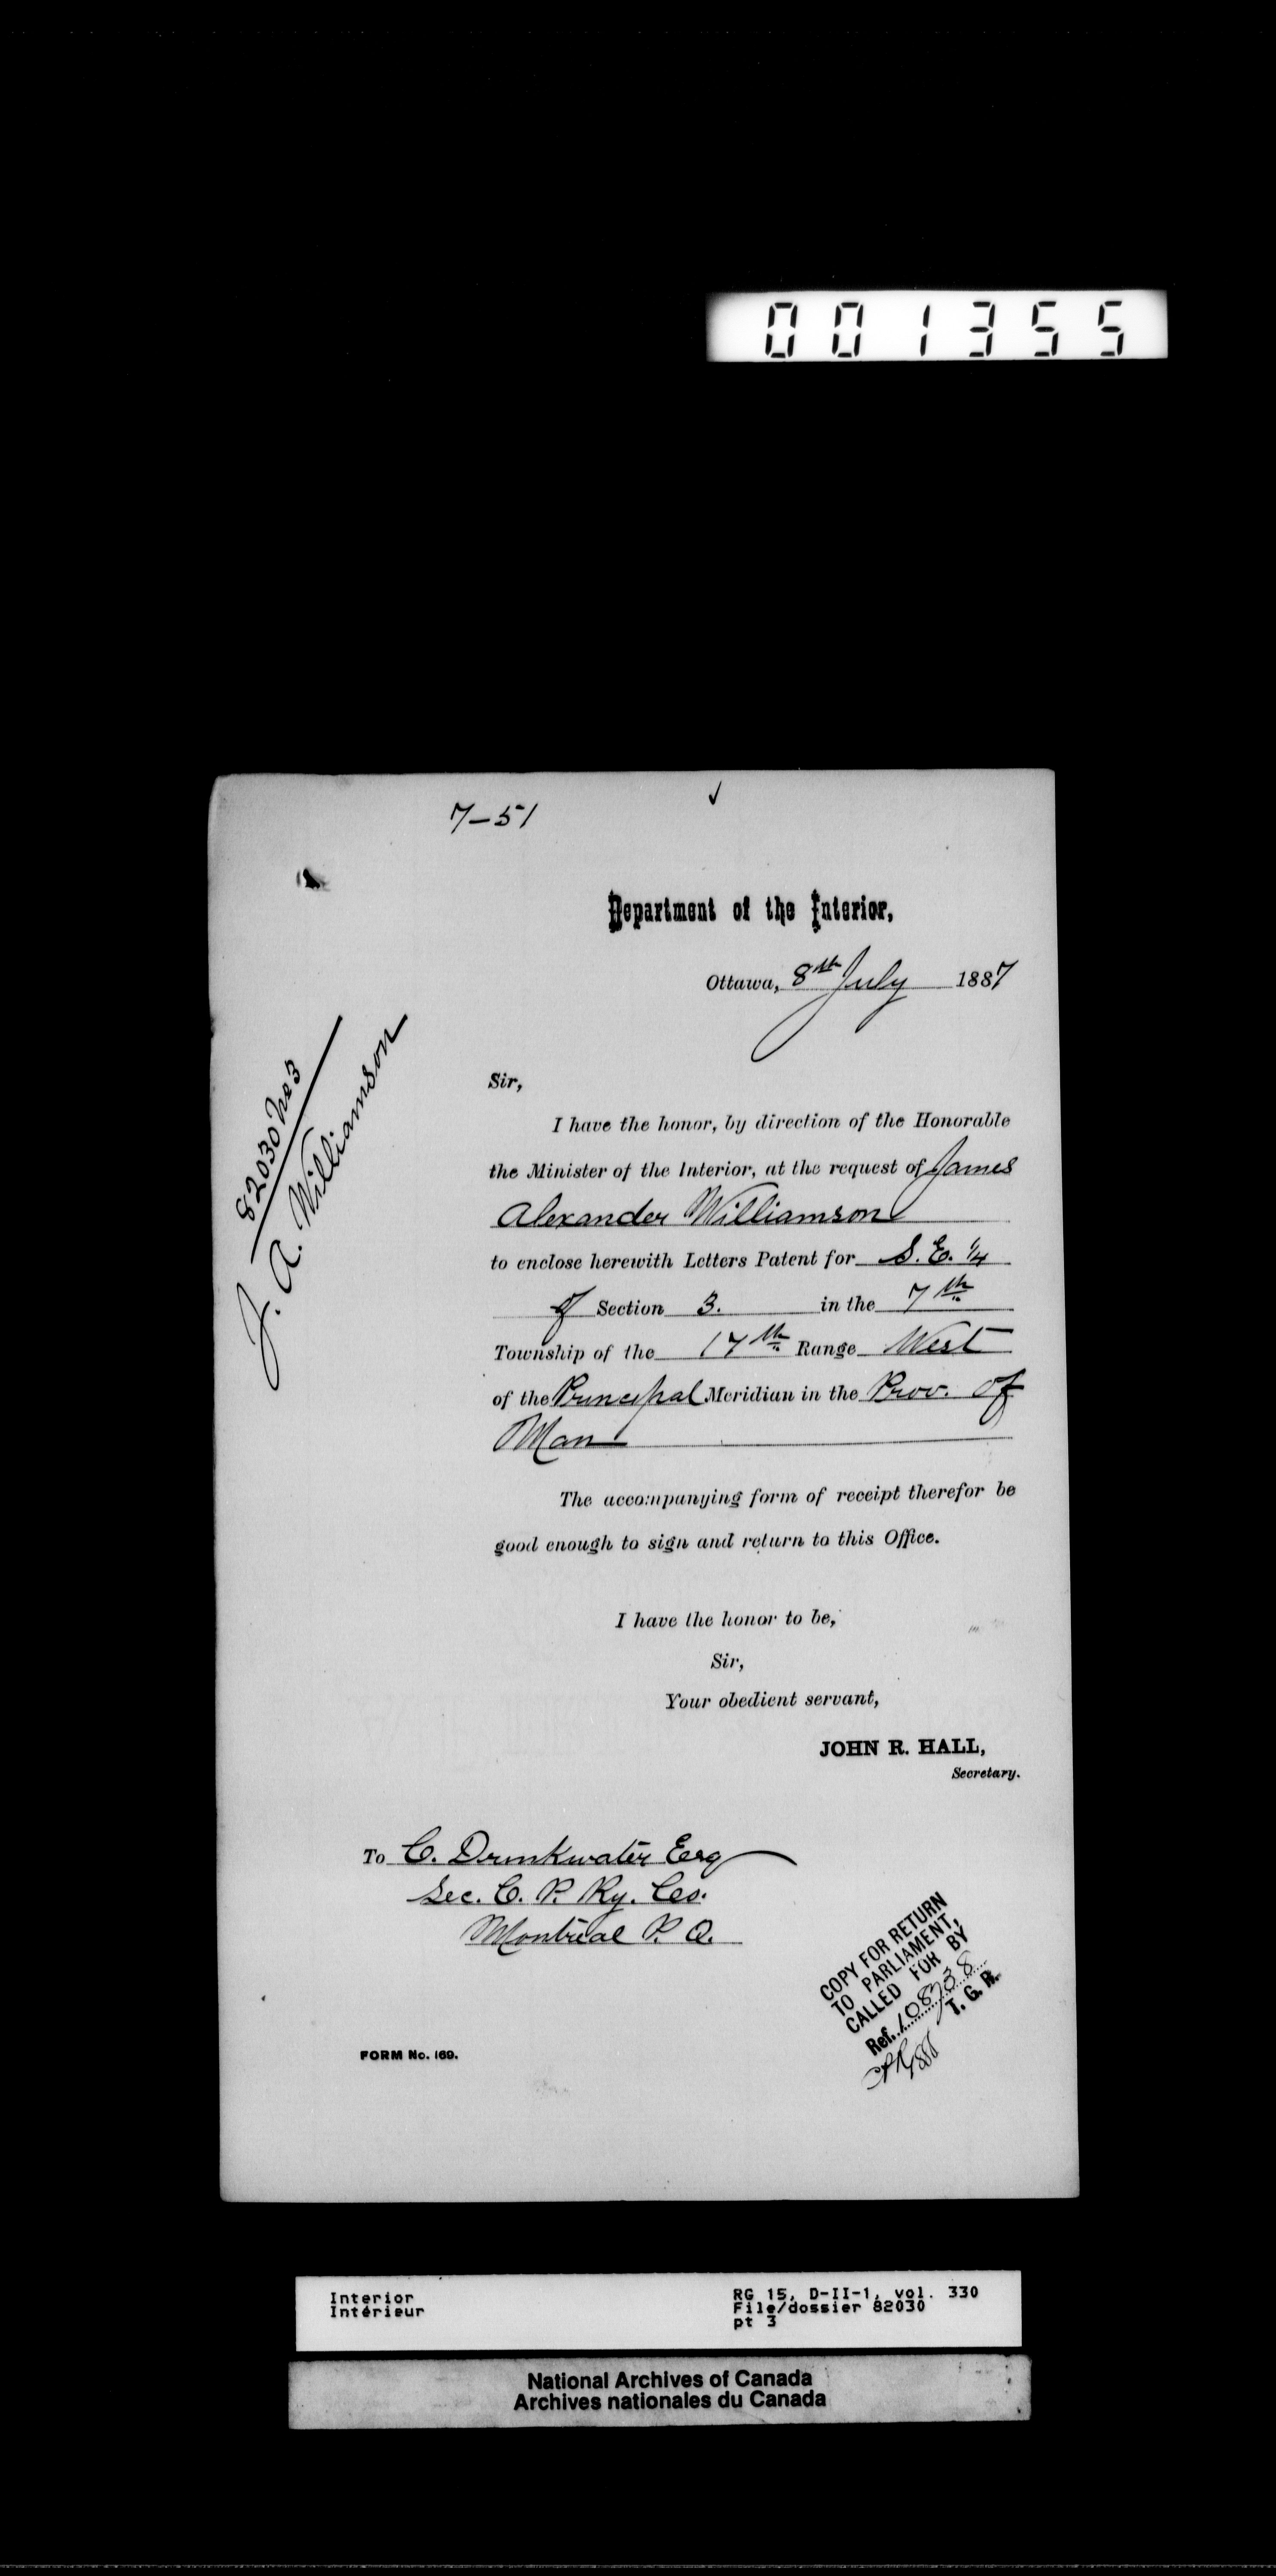 001355
7-51
Department of the Interior,
Ottawa, 8th July 1887
82030 No 3
J. A. Williamson
Sir,
I have the honor, by direction of the Honorable
the Minister of the Interior, at the request of James
Alexander Williamson
to enclose herewith Letters Patent for S. E. 1/4
of Section 3. in the 7th
Township of the 17th Range West
of the Principal Meridian in the Prov. of
Man
The accompanying form of receipt therefor be
good enough to sign and return to this Office.
I have the honor to be,
Sir,
Your obedient servant,
JOHN R. HALL,
Secretary.
To C. Drinkwater Esq
Sec. C. P. Ry. Co.
Montreal P. Q.
COPY FOR RETURN
TO PARLIAMENT,
CALLED FOR BY
Ref. 108738
T. G. R.
FORM No. 169.
Interior
Intérieur
RG 15, D-II-1, vol. 330
File/dossier 82030
pt 3
National Archives of Canada
Archives nationales du Canada